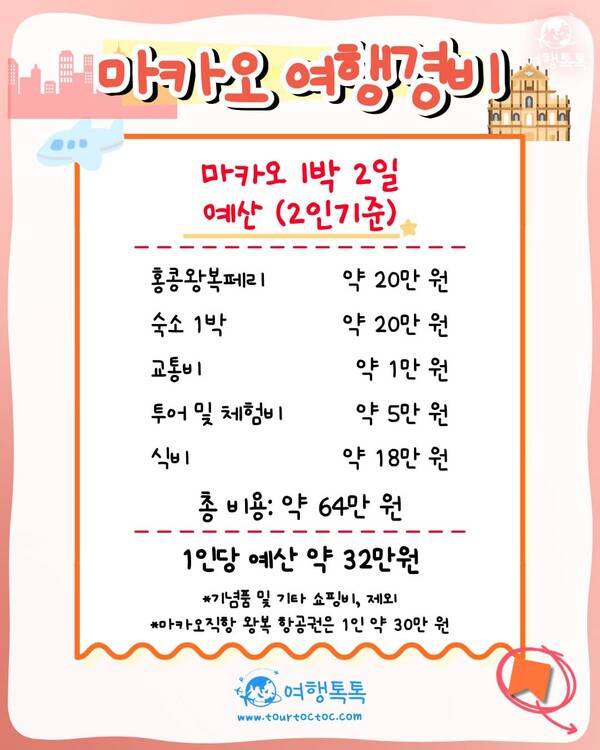 여행톡톡
마카오 여행경비
마카오 1박 2일
예산 (2인기준)
홍콩왕복페리 약 20만 원
숙소 1박 약 20만 원
교통비 약 1만 원
투어 및 체험비 약 5만 원
식비 약 18만 원
총 비용: 약 64만 원
1인당 예산 약 32만원
*기념품 및 기타 쇼핑비, 제외
*마카오직항 왕복 항공권은 1인 약 30만 원
여행톡톡
www.tourtoctoc.com